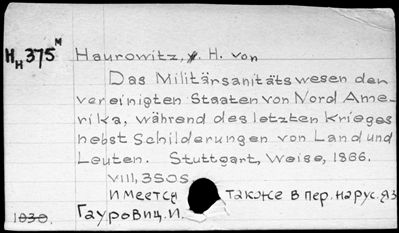 H H 375 M
Haurowitz, H. von
Das Militärsanitätswesen der
vereinigten Staaten von Nord Ame-
rika, während des letzten Krieges
nebst Schilderungen von Land und
Leuten. Stuttgart, Weise, 1866.
VIII, 350S.
Имеется также в пер. на рус. яз
1030. Гауровиц. И.